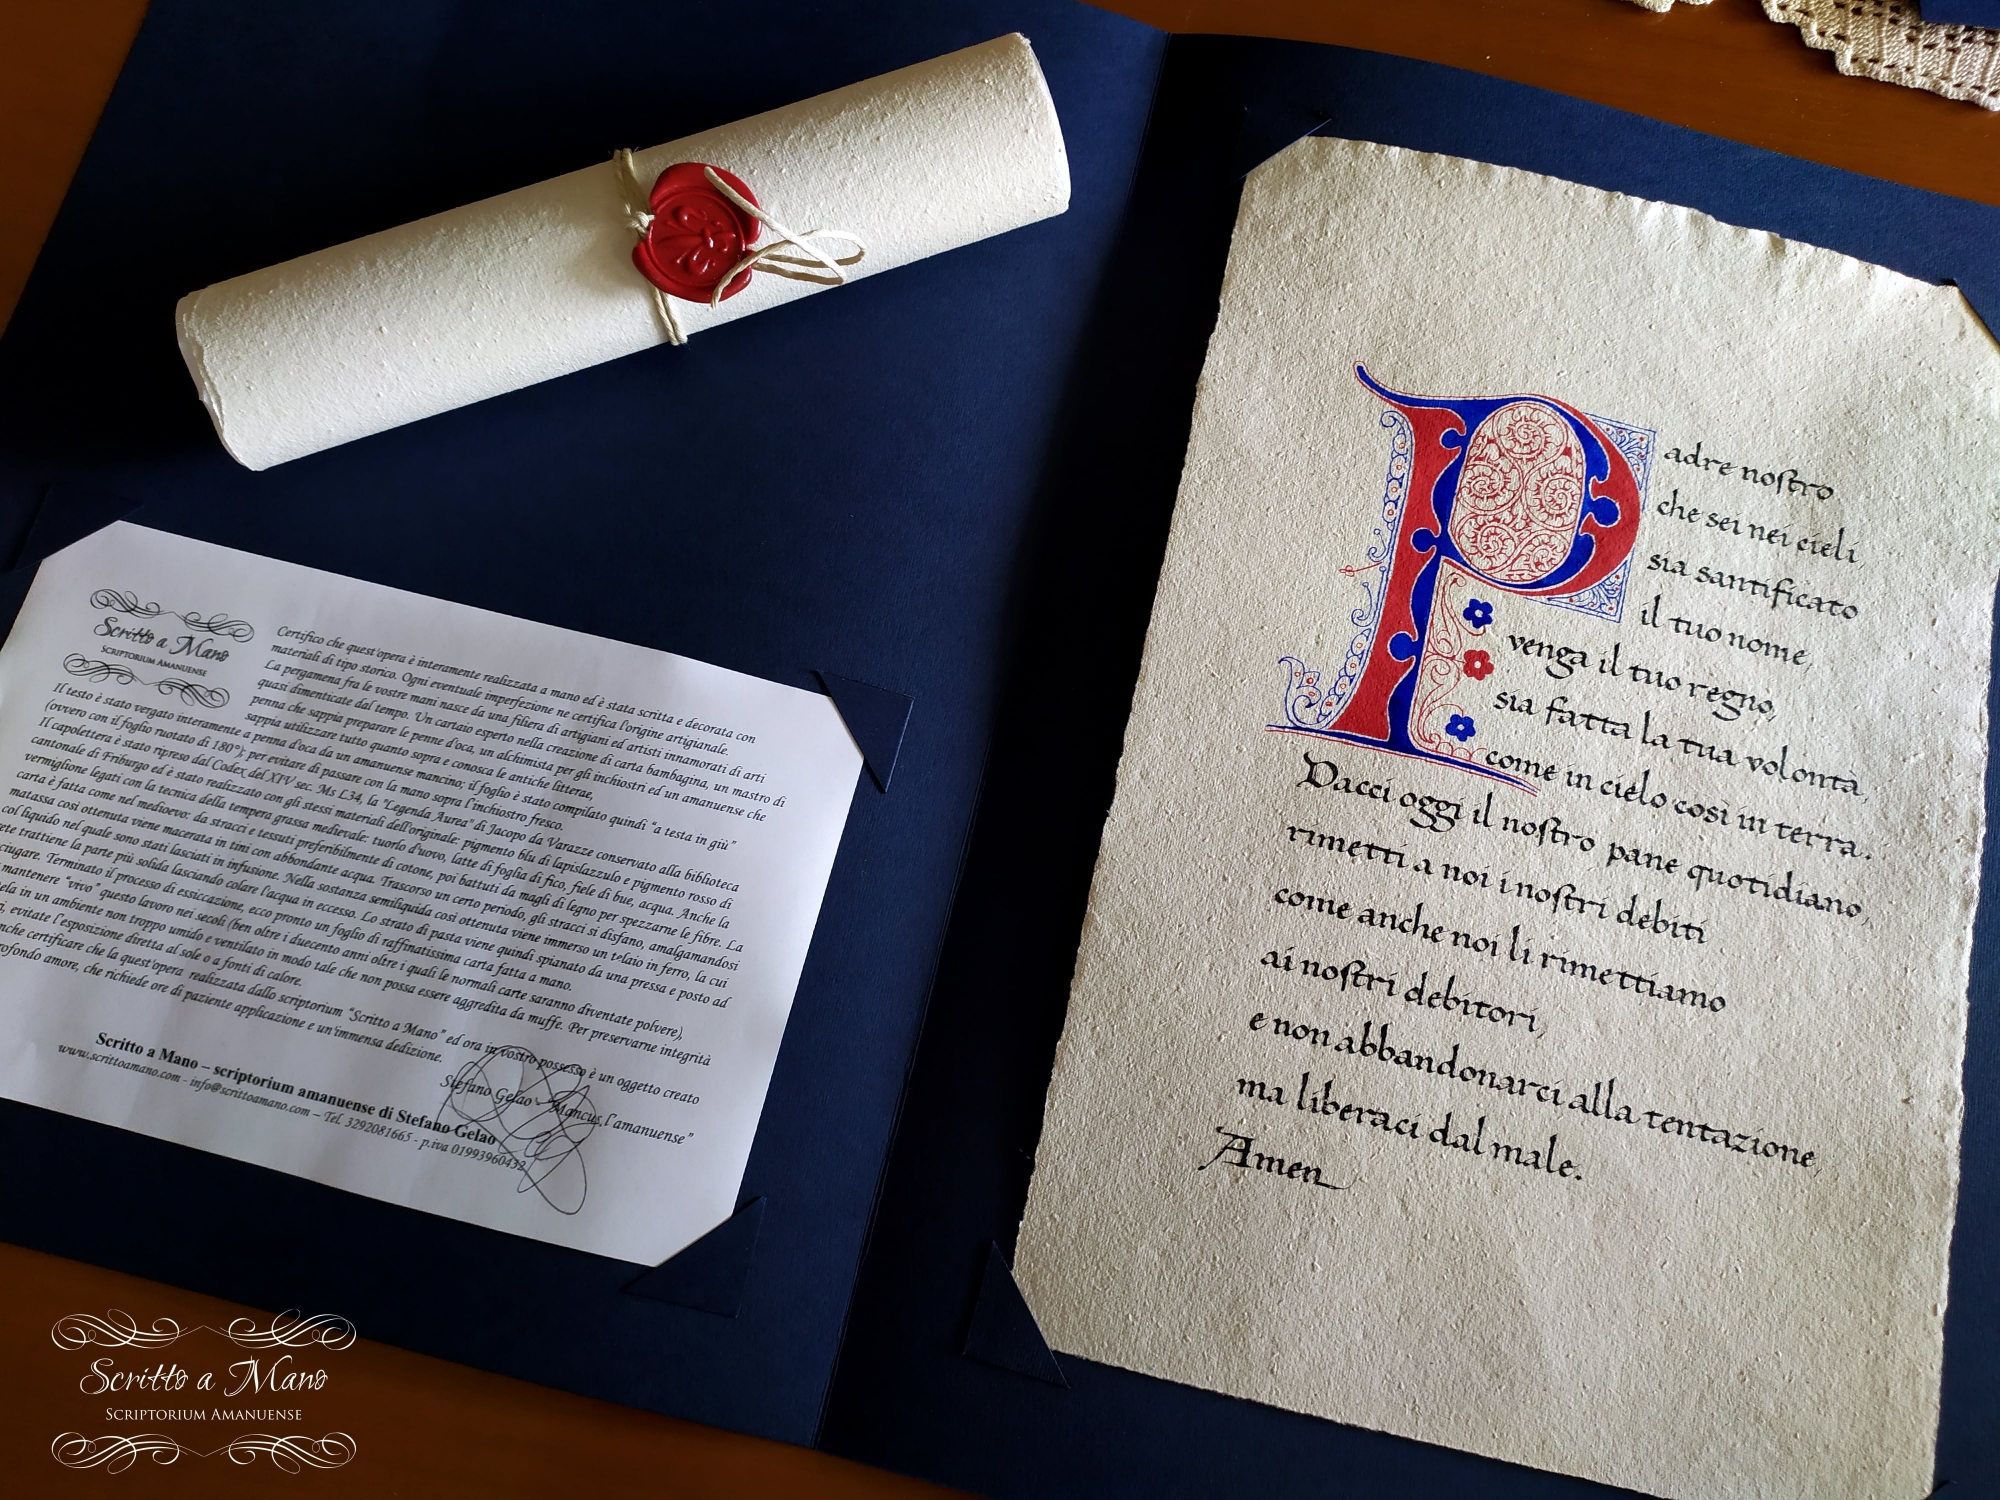 Scritto a Mano
SCRIPTORIUM AMANUENSE
Certifico che quest'opera è interamente realizzata a mano ed è stata scritta e decorata con
materiali di tipo storico. Ogni eventuale imperfezione ne certifica l'origine artigianale.
La pergamena fra le vostre mani nasce da una filiera di artigiani ed artisti innamorati di arti
quasi dimenticate dal tempo. Un cartaio esperto nella creazione di carta bambagina, un mastro di
penna che sappia preparare le penne d'oca, un alchimista per gli inchiostri ed un amanuense che
sappia utilizzare tutto quanto sopra e conosca le antiche litterae,
Il testo è stato vergato interamente a penna d'oca da un amanuense mancino; il foglio è stato compilato quindi "a testa in giù"
(ovvero con il foglio ruotato di 180°); per evitare di passare con la mano sopra l'inchiostro fresco.
Il capolettera è stato ripreso dal Codex del XIV sec. Ms L34, la "Legenda Aurea" di Jacopo da Varazze conservato alla biblioteca
cantonale di Friburgo ed è stato realizzato con gli stessi materiali dell'originale: pigmento blu di lapislazzulo e pigmento rosso di
vermiglione legati con la tecnica della tempera grassa medievale: tuorlo d'uovo, latte di foglia di fico, fiele di bue, acqua. Anche la
carta è fatta come nel medioevo: da stracci e tessuti preferibilmente di cotone, poi battuti da magli di legno per spezzarne le fibre. La
matassa così ottenuta viene macerata in tini con abbondante acqua. Trascorso un certo periodo, gli stracci si disfano, amalgamandosi
col liquido nel quale sono stati lasciati in infusione. Nella sostanza semiliquida così ottenuta viene immerso un telaio in ferro, la cui
trattiene la parte più solida lasciando colare l'acqua in eccesso. Lo strato di pasta viene quindi spianato da una pressa e posto ad
Terminato il processo di essiccazione, ecco pronto un foglio di raffinatissima carta fatta a mano.
mantenere "vivo" questo lavoro nei secoli (ben oltre i duecento anni oltre i quali le normali carte saranno diventate polvere),
in un ambiente non troppo umido e ventilato in modo tale che non possa essere aggredita da muffe. Per preservarne integrità
evitate l'esposizione diretta al sole o a fonti di calore.
certificare che la quest'opera realizzata dallo scriptorium "Scritto a Mano" ed ora in vostro possesso è un oggetto creato
amore, che richiede ore di paziente applicazione e un'immensa dedizione.
Stefano Gelao - "Mancus l'amanuense"
Scritto a Mano – scriptorium amanuense di Stefano Gelao
www.scrittoamano.com - info@scrittoamano.com – Tel. 3292081665 - p.iva 01993960432
Padre nostro
che sei nei cieli,
sia santificato
il tuo nome,
venga il tuo regno,
sia fatta la tua volontà,
come in cielo così in terra.
Dacci oggi il nostro pane quotidiano,
rimetti a noi i nostri debiti
come anche noi li rimettiamo
ai nostri debitori,
e non abbandonarci alla tentazione,
ma liberaci dal male.
Amen
Scritto a Mano
SCRIPTORIUM AMANUENSE